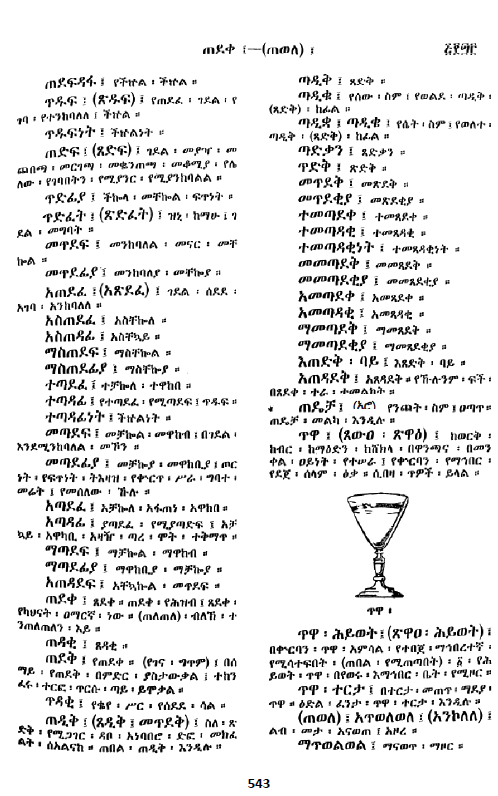 ጠደቀ ፤—(ጠወለ) ፤ ፭፻፵፫
ጠደፍዳፋ ፤ የችኵል ፡ ችኵል ።
ጥዱፍ ፤ (ጽዱፍ) ፤ የጠደፈ ፡ ገደል ፡ የ
ገባ ፡ የተንከባለለ ፤ ችኵል ።
ጥዱፍነት ፤ ችኵልነት ።
ጠድፍ ፤ (ጸድፍ) ፤ ገደል ፡
ለው ፡ የገባበትን ፡ የሚያንር ፡ የሚያንከባልል ።
ጥድፊያ ፤ ችኰላ ፡ መቸኰል ፡ ፍጥነት ።
ጥድፈት ፤ (ጽድፈት) ፤ ዝኒ ፡ ከማሁ ፤ ገ
ደል ፡ መግባት ።
መጥደፍ ፤ መንከባለል ፡ መናር ፡ መቸ
ኰል ።
መጥደፊያ ፤ መንከባለያ ፡ መቸኰያ ።
አጠደፈ ፤ (አጽደፈ) ፤ ገደል ፡ ሰደደ ፡
አገባ ፡ አንከባለለ ።
አስጠደፈ ፤ አስቸኰለ ።
አስጠዳፊ ፤ አስቸኳይ ።
ማስጠደፍ ፤ ማስቸኰል ።
ማስጠደፊያ ፤ ማስቸኰያ ።
ተጣደፈ ፤ ተቻኰለ ፡ ተዋከበ ።
ተጣዳፊ ፤ የተጣደፈ ፡ የሚጣደፍ ፤ ጥዱፍ ።
ተጣዳፊነት ፤ ችኵልነት ።
መጣደፍ ፤ መቻኰል ፡ መዋከብ ፤ በገደል ፡
እንደሚንከባለል ፡ መኾን ።
መጣደፊያ ፤ መቻኰያ ፡ መዋከቢያ ፤ ጦር
ነት ፡ የፍጥነት ፡ ትእዛዝ ፤ የቍርጥ ፡ ሥራ ፡ ግብተ ፡
መሬት ፤ የመሰለው ፡ ኹሉ ።
አጣደፈ ፤ አቻኰለ ፡ አፋጠነ ፡ አዋከበ ።
አጣዳፊ ፤ ያጣደፈ ፡ የሚያጣድፍ ፤ አቻ
ኳይ ፡ አዋካቢ ፡ አዛዥ ፡ ጣረ ፡ ሞት ፡ ተቅማጥ ።
ማጣደፍ ፤ ማቻኰል ፡ ማዋከብ ።
ማጣደፊያ ፤ ማዋከቢያ ፡ ማቻኰያ ።
አጠዳደፍ ፤ አቸኳኰል ፡ መጥደፍ ።
ጠደቀ ፤ ጸደቀ ። ጠደቀ ፡ የሕዝብ ፤ ጸደቀ ፡
የካህናት ፡ ዐማርኛ ፡ ነው ። (ጠለጠለ) ፡ ብለኸ ፡ ተ
ንጠለጠለን ፡ እይ ።
ጠዳቂ ፤ ጸዳቂ ።
ጠደቅ ፤ የጠደቀ ። (የገና ፡ ግጥም) ፤ በሰ
ማይ ፡ የጠደቅ ፡ በምድር ፡ ያስታውቃል ፤ ተከን
ፈሩ ፡ ተርፎ ፡ ጥርሱ ፡ ጣይ ፡ ይሞቃል ።
ጥዳቂ ፤ የቈየ ፡ ሥር ፡ የሰደደ ፡ ሳል ።
ጠዲቅ ፤ (ጸዲቅ ፤ መጥደቅ) ፤ ስለ ፡ ጽ
ድቅ ፡ የሚጋገር ፡ ዳቦ ፡ አነባበሮ ፡ ድፎ ፡ መክፈ
ልት ፡ ሰአልናከ ። ጠበል ፡ ጠዲቅ ፡ እንዲሉ ።
ጣዲቅ ፤ ጻድቅ ።
ጣዲቁ ፤ የሰው ፡ ስም ፤ የወልደ ፡ ጣዲቅ ፡
(ጻድቅ) ፡ ከፊል ።
ጣዲቋ ፤ ጣዲቄ ፤ የሴት ፡ ስም ፤ የወለተ ፡
ጣዲቅ ፡ (ጻድቅ) ፡ ከፊል ።
ጣድቃን ፤ ጻድቃን ።
ጥድቅ ፤ ጽድቅ ።
መጥደቅ ፤ መጽደቅ ።
መጥደቂያ ፤ መጽደቂያ ።
ተመጣደቀ ፤ ተመጻደቀ ።
ተመጣዳቂ ፤ ተመጻዳቂ ።
ተመጣዳቂነት ፤ ተመጻዳቂነት ።
መመጣደቅ ፤ መመጻደቅ ።
መመጣደቂያ ፤ መመጻደቂያ ።
አመጣደቀ ፤ አመጻደቀ ።
አመጣዳቂ ፤ አመጻዳቂ ።
ማመጣደቅ ፤ ማመጻደቅ ።
ማመጣደቂያ ፤ ማመጻደቂያ ።
አጠድቅ ፡ ባይ ፤ አጸድቅ ፡ ባይ ።
አጠዳደቅ ፤ አጸዳደቅ ። የኹሉንም ፡ ፍች ፡
በጸደቀ ፡ ተራ ፡ ተመልከት ።
ጠዴቻ ፤ (ኦሮ) የንጫት ፡ ስም ፤ ዐጣጥ ።
ጠዴቻ ፡ መልካ ፡ እንዲሉ ።
ጥዋ ፤ (ጸውዐ ፡ ጽዋዕ) ፤ ከወርቅ ፡
ከብር ፡ ከማዕድን ፡ ከሸክላ ፡ በዋንጫና ፡ በመን
ቀል ፡ ዐይነት ፡ የተሠራ ፤ የቍርባን ፡ የማኅበር ፡
የደጀ ፡ ሰላም ፡ ዕቃ ። ሲበዛ ፡ ጥዎች ፡ ይላል ።
ጥዋ ፡
ጥዋ ፡ ሕይወት ፤ (ጽዋዐ ፡ ሕይወት) ፤
በቍርባን ፡ ጥዋ ፡ አምሳል ፡ የተበጀ ፡ ማኅበረተኛ ፡
የሚሳተፍበት ፡ (ጠበል ፡ የሚጠጣበት) ፡
ይወት ፡ ጥዋ ፡ በየወሩ ፡ እማኅበር ፡ ቤት ፡ የሚዞር ።
ጥዋ ፡ ተርታ ፤ በተርታ ፡ መጠጥ ፡ ማደያ ፡
ጥዋ ። ዕድል ፡ ፈንታ ፡ ጥዋ ፡ ተርታ ፡ እንዲሉ ።
(ጠወለ) ፤ አጥወለወለ ፤ (አንኮለለ) ፤
ልብ ፡ መታ ፡ አናወጠ ፤ አዞረ ።
ማጥወልወል ፤ ማናወጥ ፡ ማዞር ።
543